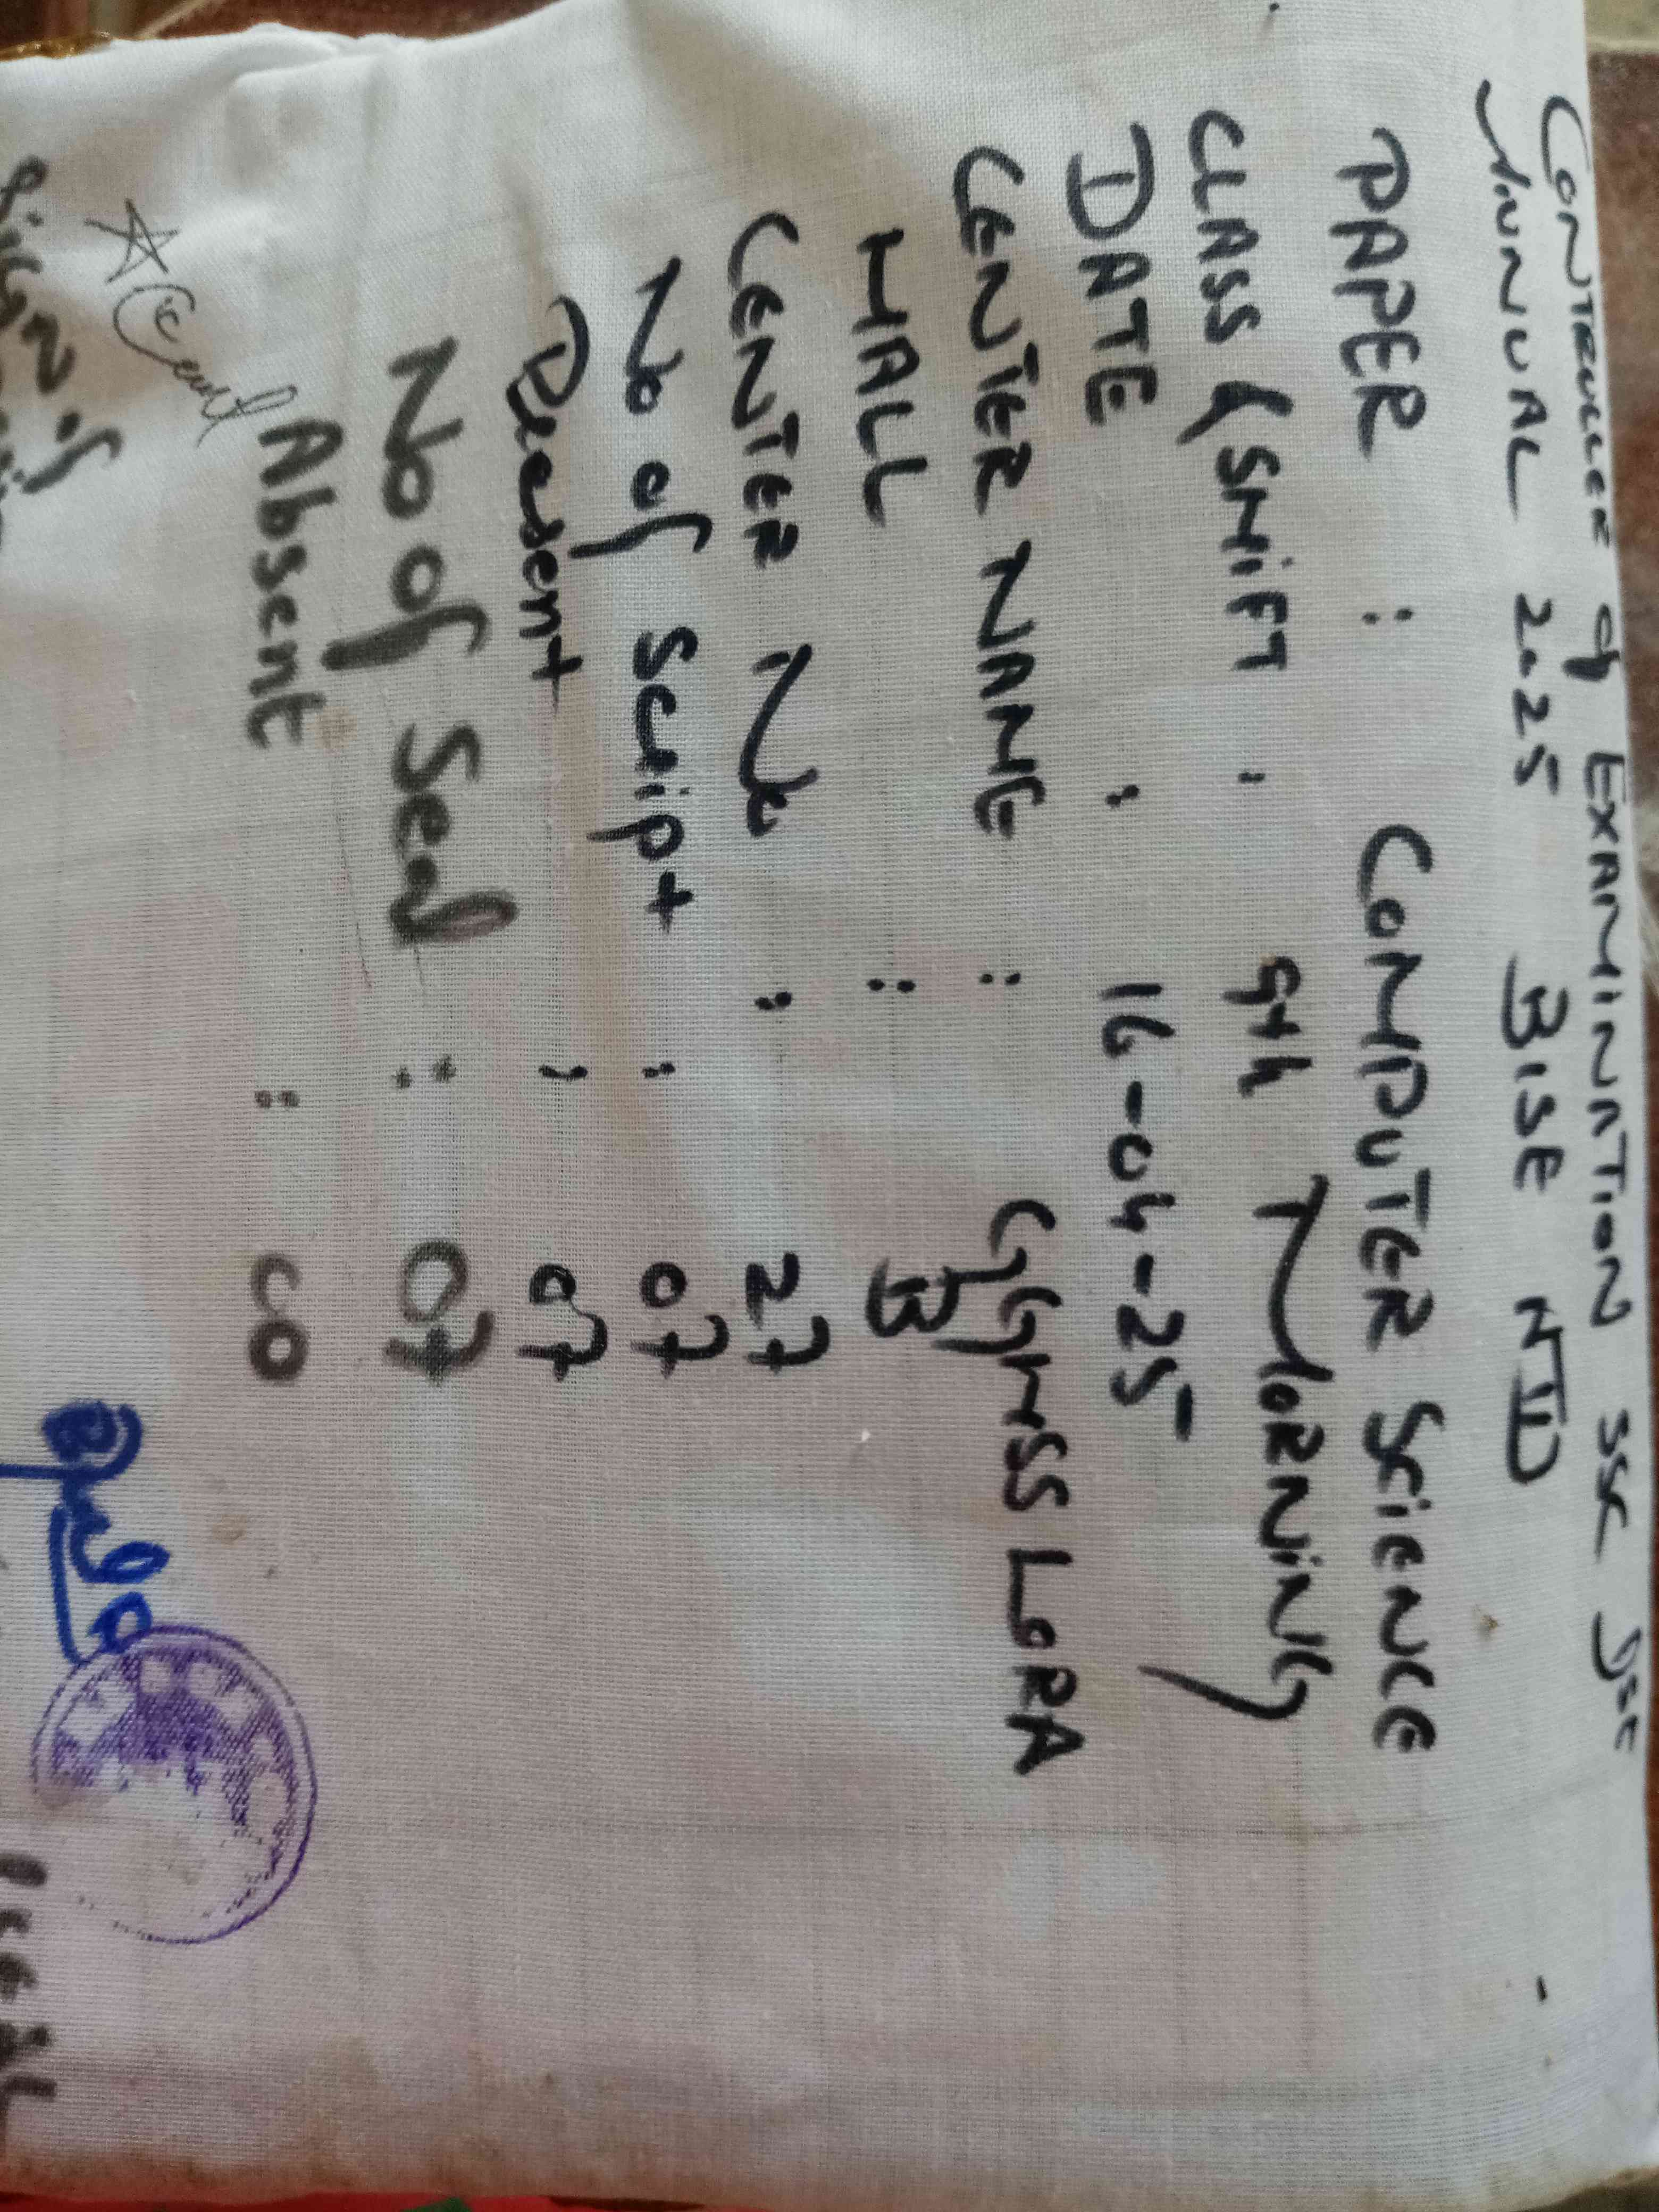 CONTROLLER of EXAMINATION SSC
ANNUAL 2025 BISE ATD
PAPER : COMPUTER SCIENCE
CLASS & SHIFT : 9th MORNING
DATE : 16-04-25
CENTER NAME : GGHSS LORA
HALL : B
CENTER No : 27
No of Script : 07
Present : 07
No of Seal : 07
Absent : 00
Sign of